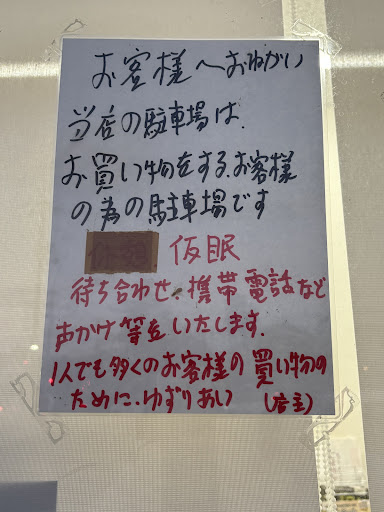 お客様へおねがい
当店の駐車場は、
お買い物をする、お客様
の為の駐車場です
仮眠
待ち合わせ、携帯電話など
声かけ等をいたします。
1人でも多くのお客様の買い物の
ために、ゆずりあい (店主)